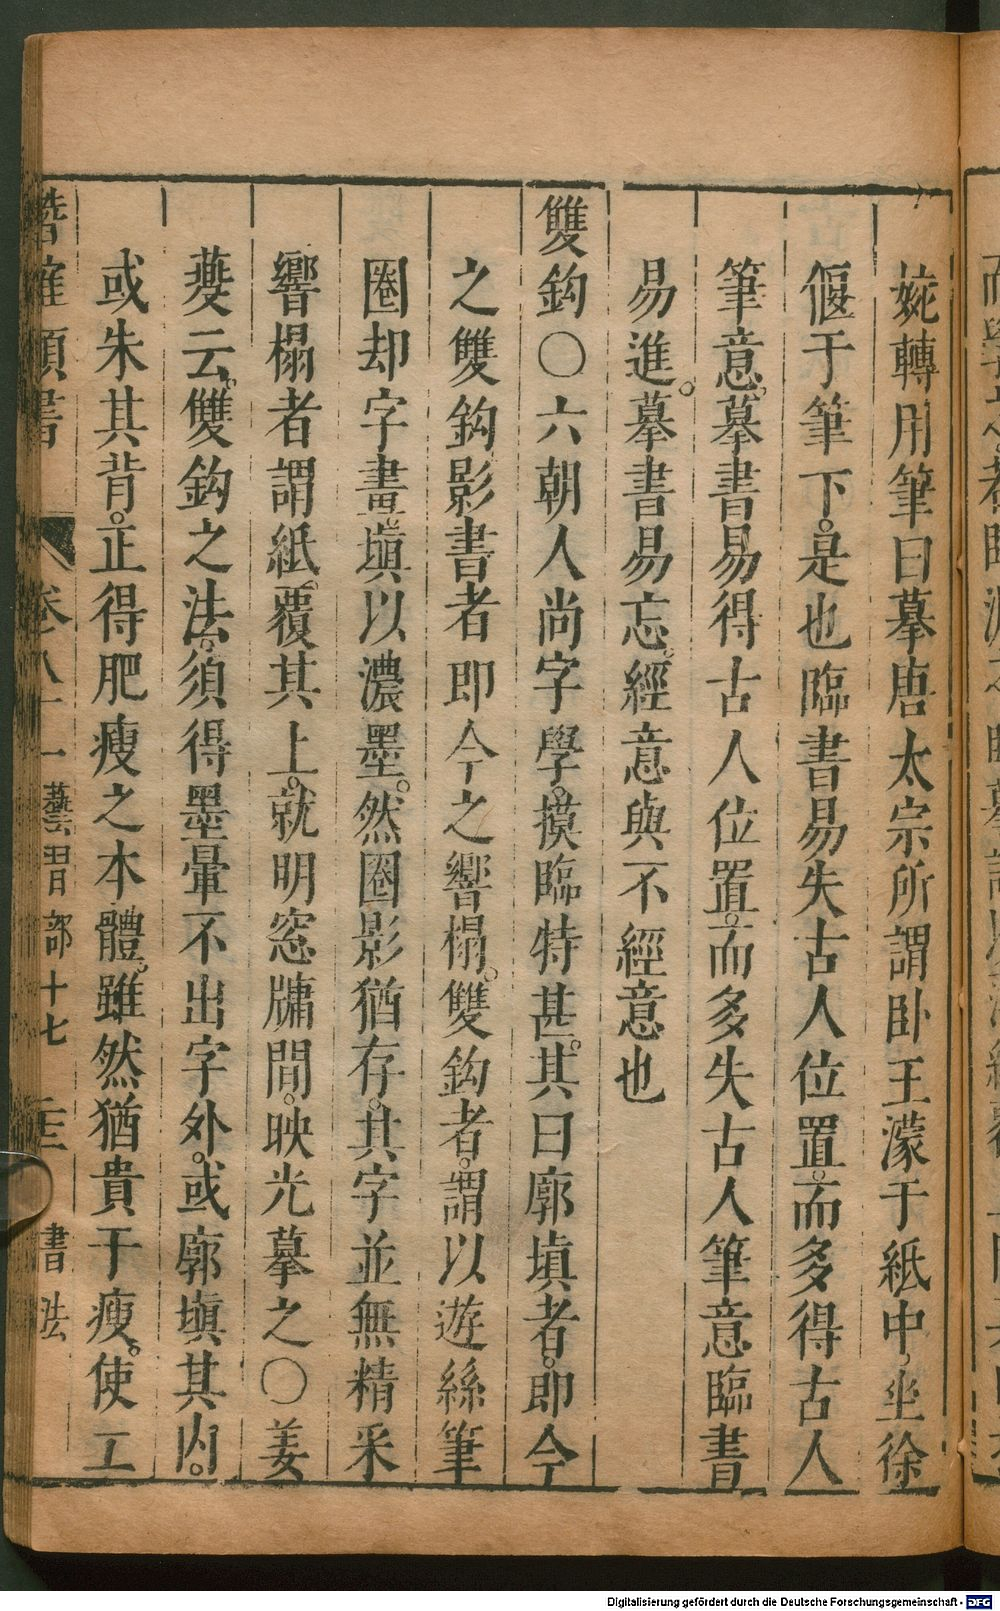 婉轉用筆曰摹唐太宗所謂卧王濛于紙中。坐徐
偃于筆下。是也臨書易失古人位置。而多得古人
筆意。摹書易得古人位置。而多失古人筆意臨書
易進。摹書易忘。經意與不經意也
雙鈎〇六朝人尚字學。摸臨特甚。其曰廓填者。即今
之雙鈎影書者即今之響榻。雙鈎者。謂以遊絲筆
圈却字畫。塡以濃墨。然圈影猶存。其字並無精采
響榻者謂紙。覆其上。就明窓牗間。映光摹之〇姜
䕫云。雙鈎之法。須得墨暈不出字外。或廓塡其內。
或朱其背。正得肥瘦之本體。雖然猶貴于瘦。使工
潛確類書 卷八十一 藝習部十七 書法
Digitalisierung gefördert durch die Deutsche Forschungsgemeinschaft - DFG